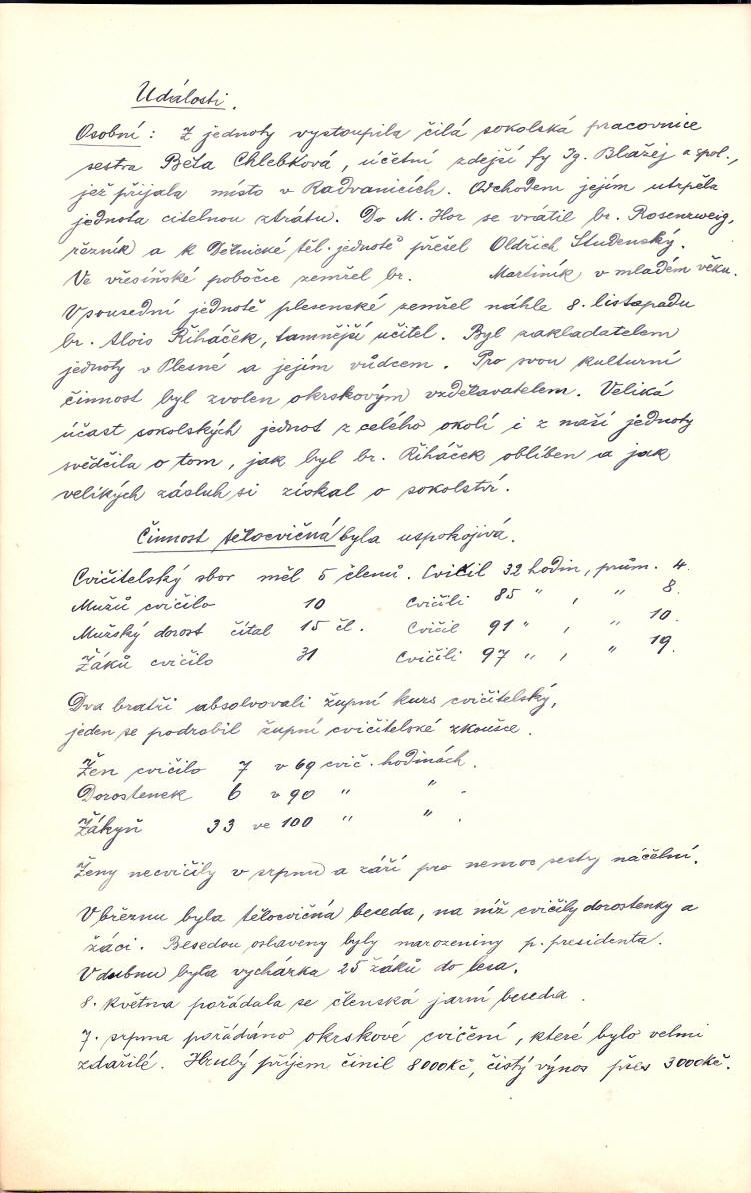 Události.
Osobní: Z jednoty vystoupila čilá sokolská pracovnice
sestra Běla Chlebková, účetní zdejší fy Ig. Blažej a spol.,
jež přijala místo v Radvanicích. Odchodem jejím utrpěla
jednota citelnou ztrátu. Do M. Hor se vrátil br. Rosenzweig,
řezník a k Dělnické těl. jednotě přešel Oldřich Studenský.
Ve vřesinské pobočce zemřel br. Martiník v mladém věku.
V sousední jednotě plesenské zemřel náhle 8. listopadu
br. Alois Řiháček, tamnější učitel. Byl zakladatelem
jednoty v Plesné a jejím vůdcem. Pro svou kulturní
činnost byl zvolen okrskovým vzdělavatelem. Veliká
účast sokolských jednot z celého okolí i z naší jednoty
svědčila o tom, jak byl br. Řiháček oblíben a jak
velikých zásluh si získal o sokolství.
Činnost tělocvičná byla uspokojivá.
Cvičitelský sbor měl 5 členů. Cvičil 32 hodin, prům. 4.
Mužů cvičilo 10 Cvičili 85 " , " 8.
Mužský dorost čítal 15 čl. Cvičil 91 " , " 10.
Žáků cvičilo 31 Cvičili 97 " , " 19.
Dva bratři absolvovali župní kurs cvičitelský,
jeden se podrobil župní cvičitelské zkoušce.
Žen cvičilo 7 v 69 cvič. hodinách.
Dorostenek 6 v 90 " " .
Žákyň 33 ve 100 " " .
Ženy necvičily v srpnu a září pro nemoc sestry náčelní.
V březnu byla tělocvičná beseda, na níž cvičily dorostenky a
žáci. Besedou oslaveny byly narozeniny p. presidenta.
V dubnu byla vycházka 25 žáků do lesa.
8. května pořádala se členská jarní beseda.
7. srpna pořádáno okrskové cvičení, které bylo velmi
zdařilé. Hrubý příjem činil 8000Kč, čistý výnos přes 3000Kč.